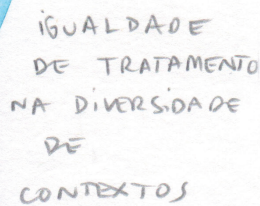 iGUALDADE
DE TRATAMENTO
NA DiVERSiDADE
DE
CONTEXTOS